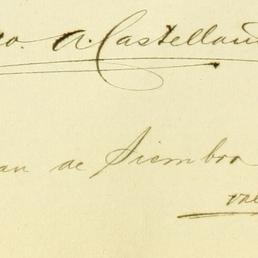 o. A. Castellan
an de Siembra